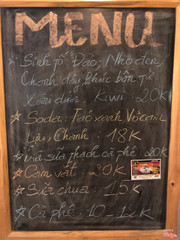 MENU
Sinh tố Đào, Nho đen,
Chanh dây, phúc bồn tử
Xoài dừa, Kiwi 20K
Soda: Táo xanh, Vải
Lựu, Chanh: 18K
sữa thạch cà phê 20K
Cam vắt: 20K
Sữa chua: 15K
Cà phê: 10-12K